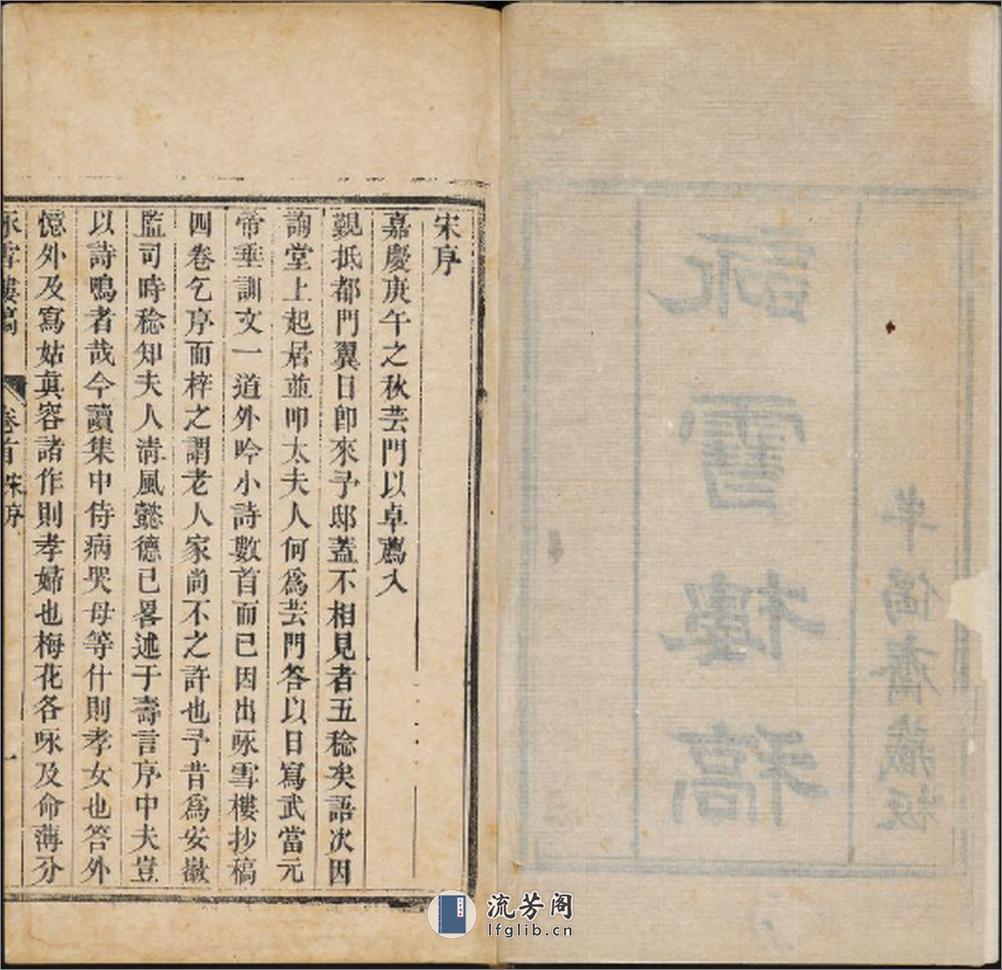 詠雪樓稿
半偈齋藏板
宋序
嘉慶庚午之秋芸門以卓薦入
覲抵都門翼日卽來予邸蓋不相見者五稔矣語次因
詢堂上起居並叩太夫人何爲芸門答以日寫武當元
帝垂訓文一道外吟小詩數首而已因出詠雪樓抄稿
四卷乞序而梓之謂老人家尚不之許也予昔爲安徽
監司時稔知夫人清風懿德已畧述于壽言序中夫豈
以詩鳴者哉今讀集中侍病哭母等什則孝女也答外
憶外及寫姑真容諸作則孝婦也梅花各咏及命海分
詠雪樓稿 卷首 宋序 一
流芳阁
lfglib.cn